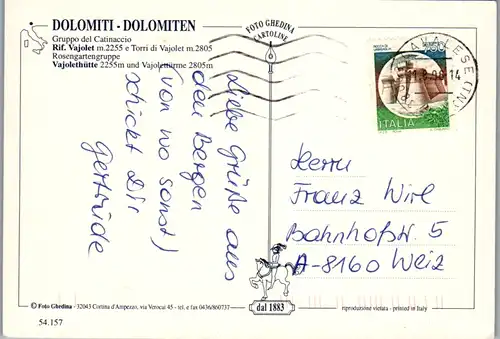 DOLOMITI - DOLOMITEN
Gruppo del Catinaccio
Rif. Vajolet m.2255 e Torri di Vajolet m.2805
Rosengartengruppe
Vajolethütte 2255m und Vajolettürme 2805m
FOTO GHEDINA
CARTOLINE
CAVALESE (TN)
14
750
ITALIA
Liebe Grüße aus
den Bergen
(von wo sonst)
schickt Dir
Gertrude
Herrn
Franz Wirl
Bahnhofstr. 5
A-8160 Weiz
dal 1883
© Foto Ghedina - 32043 Cortina d'Ampezzo, via Verocai 45 - tel. e fax 0436/860737
riproduzione vietata - printed in Italy
54.157